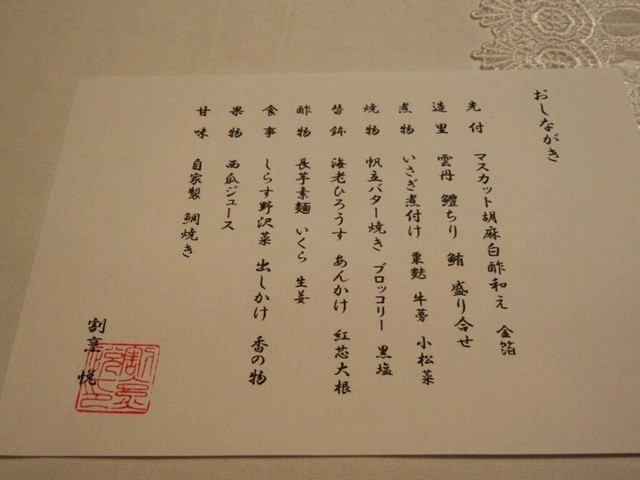 おしながき
先付 マスカット胡麻白酢和え 金箔
造里 雲丹 鱧ちり 鮪 盛り合せ
煮物 いさぎ煮付け 粟麩 牛蒡 小松菜
焼物 帆立バター焼き ブロッコリー 黒塩
替鉢 海老ひろうす あんかけ 紅芯大根
酢物 長芋素麺 いくら 生姜
食事 しらす野沢菜 出しかけ 香の物
果物 西瓜ジュース
甘味 自家製 鯛焼き
割烹 悦